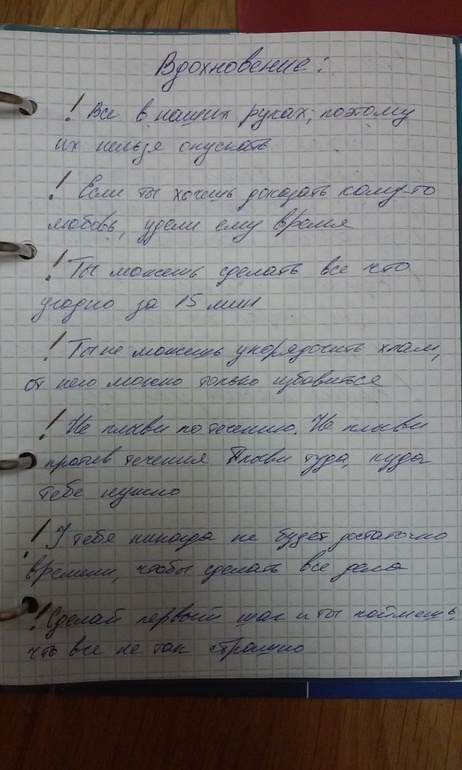 Вдохновение:
! Все в наших руках, поэтому
их нельзя опускать
! Если ты хочешь доказать кому-то
любовь, удели ему время
! Ты можешь сделать все что
угодно за 15 мин
! Ты не можешь упорядочить хлам,
от него можно только избавиться
! Не плыви по течению. Не плыви
против течения Плыви туда, куда
тебе нужно
! У тебя никогда не будет достаточно
времени, чтобы сделать все дела
! Сделай первый шаг и ты поймешь,
что все не так страшно